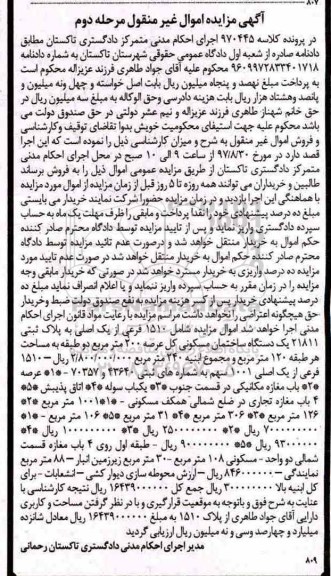 ۸۰۷
آگهی مزایده اموال غیر منقول مرحله دوم
در پرونده کلاسه ۹۷۰۴۴۵ اجرای احکام مدنی متمرکز دادگستری تاکستان مطابق
دادنامه صادره از شعبه اول دادگاه عمومی حقوقی شهرستان تاکستان به شماره دادنامه
۹۶۰۹۹۷۲۸۳۳۴۰۱۷۱۸ محکوم علیه آقای جواد طاهری فرزند عزیزاله محکوم است
به پرداخت مبلغ نهصد و پنجاه میلیون ریال بابت اصل خواسته و چهل ونه میلیون و
پانصد وهشتاد هزار ریال بابت هزینه دادرسی وحق الوکاله به مبلغ سه میلیون ریال در
حق خانم شهناز طاهری فرزند عزیزاله و نیم عشر دولتی در حق صندوق دولت می
باشد محکوم علیه جهت استیفای محکومیت خویش بدوا تقاضای توقیف وکارشناسی
و فروش اموال غیر منقول به شرح و میزان کارشناسی ذیل را نموده است که این اجرا
قصد دارد در مورخ ۹۷/۸/۳۰ از ساعت ۹ الی ۱۰ صبح در محل اجرای احکام مدنی
متمرکز دادگستری تاکستان از طریق مزایده عمومی اموال ذیل را به فروش برساند
طالبین و خریداران می توانند همه روزه تا ۵ روز قبل از زمان مزایده از اموال مورد مزایده
با هماهنگی این اجرا بازدید و در زمان مزایده حضور یابند شرکت نمایند خریدار می بایستی
مبلغ ده درصد پیشنهادی خود را نقدا پرداخت و مابقی را ظرف مهلت یک ماه به حساب
سپرده دادگستری واریز نماید و پس از تایید مزایده توسط دادگاه محترم صادر کننده
حکم اموال به خریدار منتقل خواهد شد و درصورت عدم تائید مزایده توسط دادگاه
محترم صادر کننده حکم اموال به خریدار منتقل نخواهد شد در صورت عدم تایید مورد
مزایده ده درصد واریزی به خریدار مسترد خواهد شد در صورتی که خریدار مابقی وجه
مزایده را در زمان مقرر به حساب سپرده واریز ننماید و یا اعلام انصراف نماید مبلغ ده
درصد پیشنهادی خریدار پس از کسر هزینه مزایده به نفع صندوق دولت ضبط وخریدار
حق هیچگونه اعتراضی را نخواهد داشت مراسم مزایده با رعایت مواد قانون اجرای احکام
مدنی اجرا خواهد شد اموال مزایده شامل ۱۵۱۰ فرعی از یک اصلی به پلاک ثبتی
۲۱۸۱۱ یک دستگاه ساختمان مسکونی کل عرصه ۲۰۰ متر مربع دو طبقه به مساحت
هر طبقه ۱۲۰ متر مربع و مجموع ابنیه ۲۴۰ متر مربع ۲/۸۰۰/۰۰۰/۰۰۰ ریال – ۱۵۱۰
فرعی از یک اصلی
*۲* باب مغازه مکانیکی در قسمت جنوب *۳* یکباب سوله *۴* اتاق پذیرش *۵*
۴ باب مغازه تجاری در ضلع شمالی همکف مسکونی
۱۲۶ متر مربع *۳* ۳۰۶ متر مربع *۴* ۳۱ متر مربع *۵* ۱۰۶ متر مربع
شمالی دو واحد – مسکونی ۱۰۸ متر مربع –۳۰ متر مربع زیرزمین انبار –۸۸ متر مربع
عنایت به شرح فوق و باتوجه به موقعیت قرارگیری و با در نظر گرفتن مساحت و کاربری
دارایی آقای جواد طاهری از پلاک ۱۵۱۰ به مبلغ ۱۶۴۳۹۰۰۰۰۰۰ ریال معادل شانزده
میلیارد و چهارصد وسی و نه میلیون ریال ارزیابی گردید
مدیر اجرای احکام مدنی دادگستری تاکستان رحمانی
۸۰۹